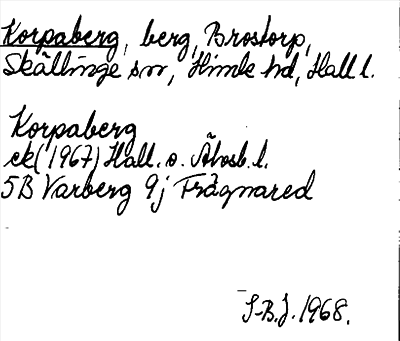 Korpaberg, berg, Brostorp,
Skällinge sn, Himle hd, Hall l.
Korpaberg
ek (1967) Hall. o. Älvsb. l.
5B Varberg 9j Frägnared
S-B.J. 1968.